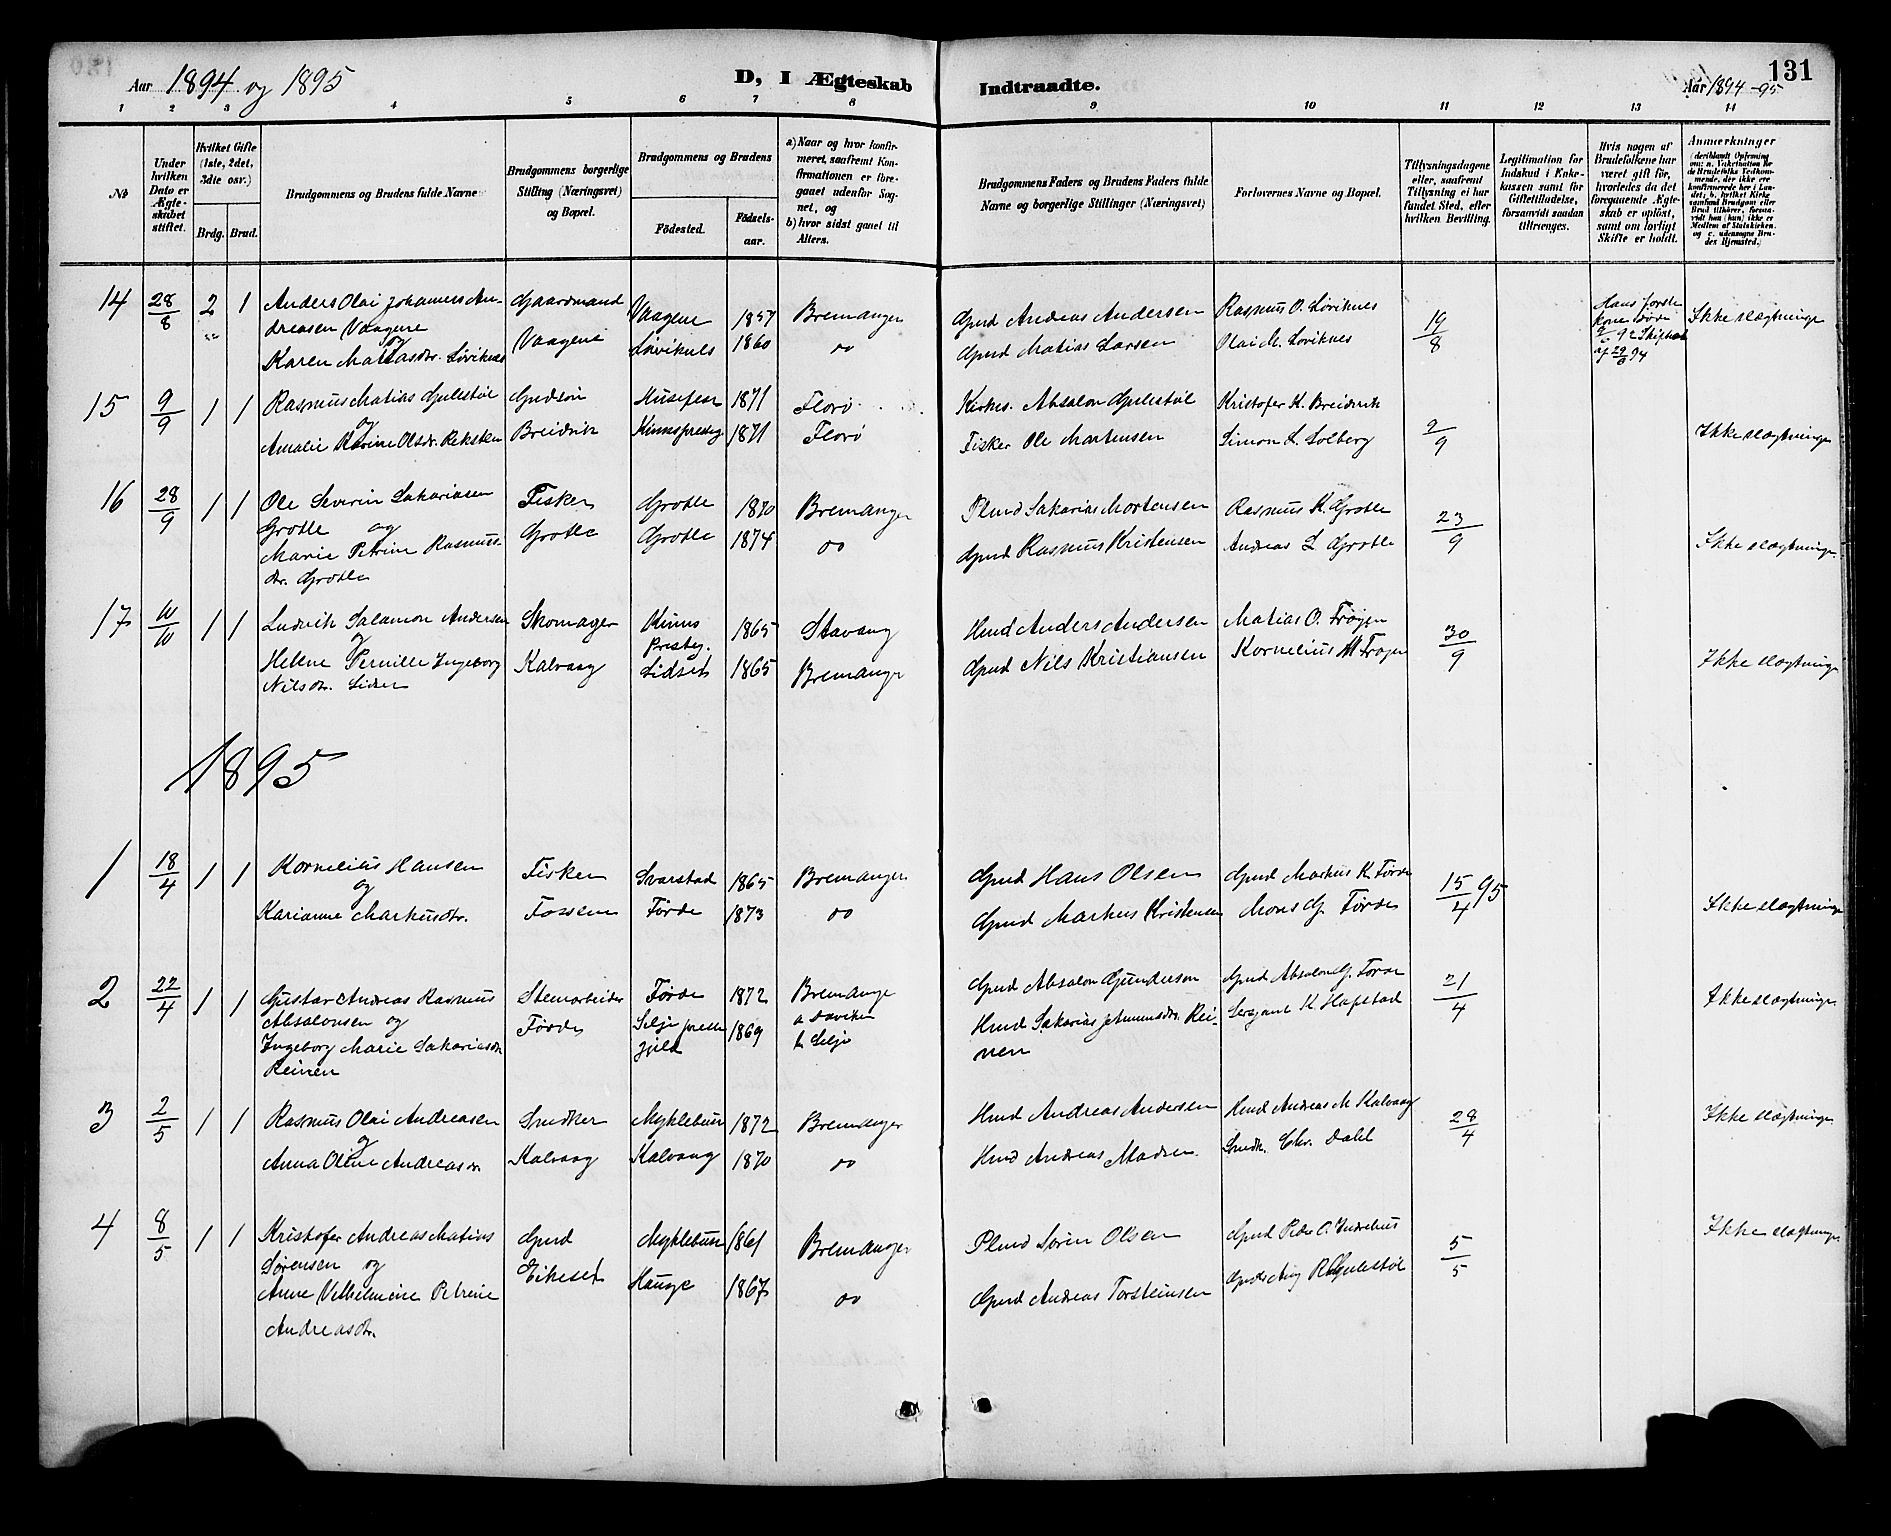 131
Aar 1894 og 1895
D, I Ægteskab Indtraadte.
Aar 1894-95
1 2 3 4 5 6 7 8 9 10 11 12 13 14
No
Under hvilken Dato er Ægteskabet stiftet.
Hvilket Gifte (1ste, 2det, 3die osv.)
Brdg. Brud.
Brudgommens og Brudens fulde Navne
Brudgommens borgerlige Stilling (Næringsvei) og Bopæl.
Brudgommens og Brudens
Födested. Födsels-aar.
a) Naar og hvor konfirmeret, saafremt Konfirmationen er foregaaet udenfor Sognet, og
b) hvor sidst gaaet til Alters.
Brudgommens Faders og Brudens Faders fulde Navne og borgerlige Stillinger (Næringsvei)
Forlovernes Navne og Bopæl.
Tillysningsdagene eller, saafremt Tillysning ei har fundet Sted, efter hvilken Bevilling.
Legitimation for Indskud i Enkekassen samt for Giftetilladelse, forsaavidt saadan tiltrænges.
Hvis nogen af Brudefolkene har været gift för, hvorledes da det foregaaende Ægteskab er oplöst, samt om lovligt Skifte er holdt.
Anmærkninger
14 28/8 2 1 Anders Olai Johannes Andreasen Vaagene og Karen Matiasdtr. Løviknes
Gaardmand Vaagene
Vaagene 1857 Bremanger
Løviknes 1860 do
Gmd Anders Andersen
Gmd Matias Larsen
Rasmus O. Løviknes
Olai M. Løviknes
19/8
Hans første kone døde
Ikke slægtninge
15 9/9 1 1 Rasmus Matias Gulestøl og Amalie Olsdr. Reksten
Gmdsøn Breidvik
Husefær 1871 Florø
Kinns presteg 1871 Florø
Kirkes. Absalon Gulestøl
Fisker Ole Martensen
Kristofer K. Breidvik
Simon L. Solberg
2/9
Ikke slægtninge
16 28/9 1 1 Ole Severin Sakariasen Grotle og Marie Petrine Rasmusdtr. Grotle
Fisker Grotle
Grotle 1870 Bremanger
Grotle 1874 do
Plmd Sakarias Mortensen
Gmd Rasmus Kristensen
Rasmus K. Grotle
Andreas L Grotle
23/9
Ikke slægtninge
17 10/10 1 1 Ludvik Salamon Andersen og Helene Pernille Ingeborg Nilsdtr. Lidset
Skomager Kalvaag
Kinns Presteg. 1865 Stavang
Lidset 1865 Bremanger
Hmd Anders Andersen
Gmd Nils Kristiansen
Matias O. Frøjen
Kornelius M Frøjen
30/9
Ikke slægtninge
1895
1 18/4 1 1 Kornelius Hansen og Karianne Markusdtr.
Fisker Fossem
Svarstad 1865 Bremanger
Førde 1873 do
Gmd Hans Olsen
Gmd Markus Kristensen
Gmd Markus K. Førde
Mons G. Førde
15/4 95
Ikke slægtninge
2 22/4 1 1 Gustav Andreas Rasmus Absalonsen og Ingeborg Marie Sakariasdtr Reinen
Stenarbeider Førde
Førde 1872 Bremanger
Selje prestegjeld 1869 a Daviken b Selje
Gmd Absalon Gunderson
Hmd Sakarias Johannesdtr. Reinen
Gmd Absalon G. Førde
Sersjant K Hafstad
21/4
Ikke slægtninge
3 2/5 1 1 Rasmus Olai Andreasen og Anna Oline Andreasdtr
Snedker Kalvaag
Myklebust 1872 Bremanger
Kalvaag 1870 do
Hmd Andreas Andersen
Hmd Andreas Madsen.
Hmd Andreas M Kalvaag
Snedk. Chr. Dahl
28/4
Ikke slægtninge
4 8/5 1 1 Kristofer Andreas Matias Sørensen og Anne Vilhelmine Petrine Andreasdtr.
Gmd Eikeset
Myklebust 1861 Bremanger
Hauge 1867 do
Plmd Søren Olsen
Gmd Andreas Torsteinsen
Gmd Peder O. Indrehus
R Gulestøl
5/5
Ikke slægtninge